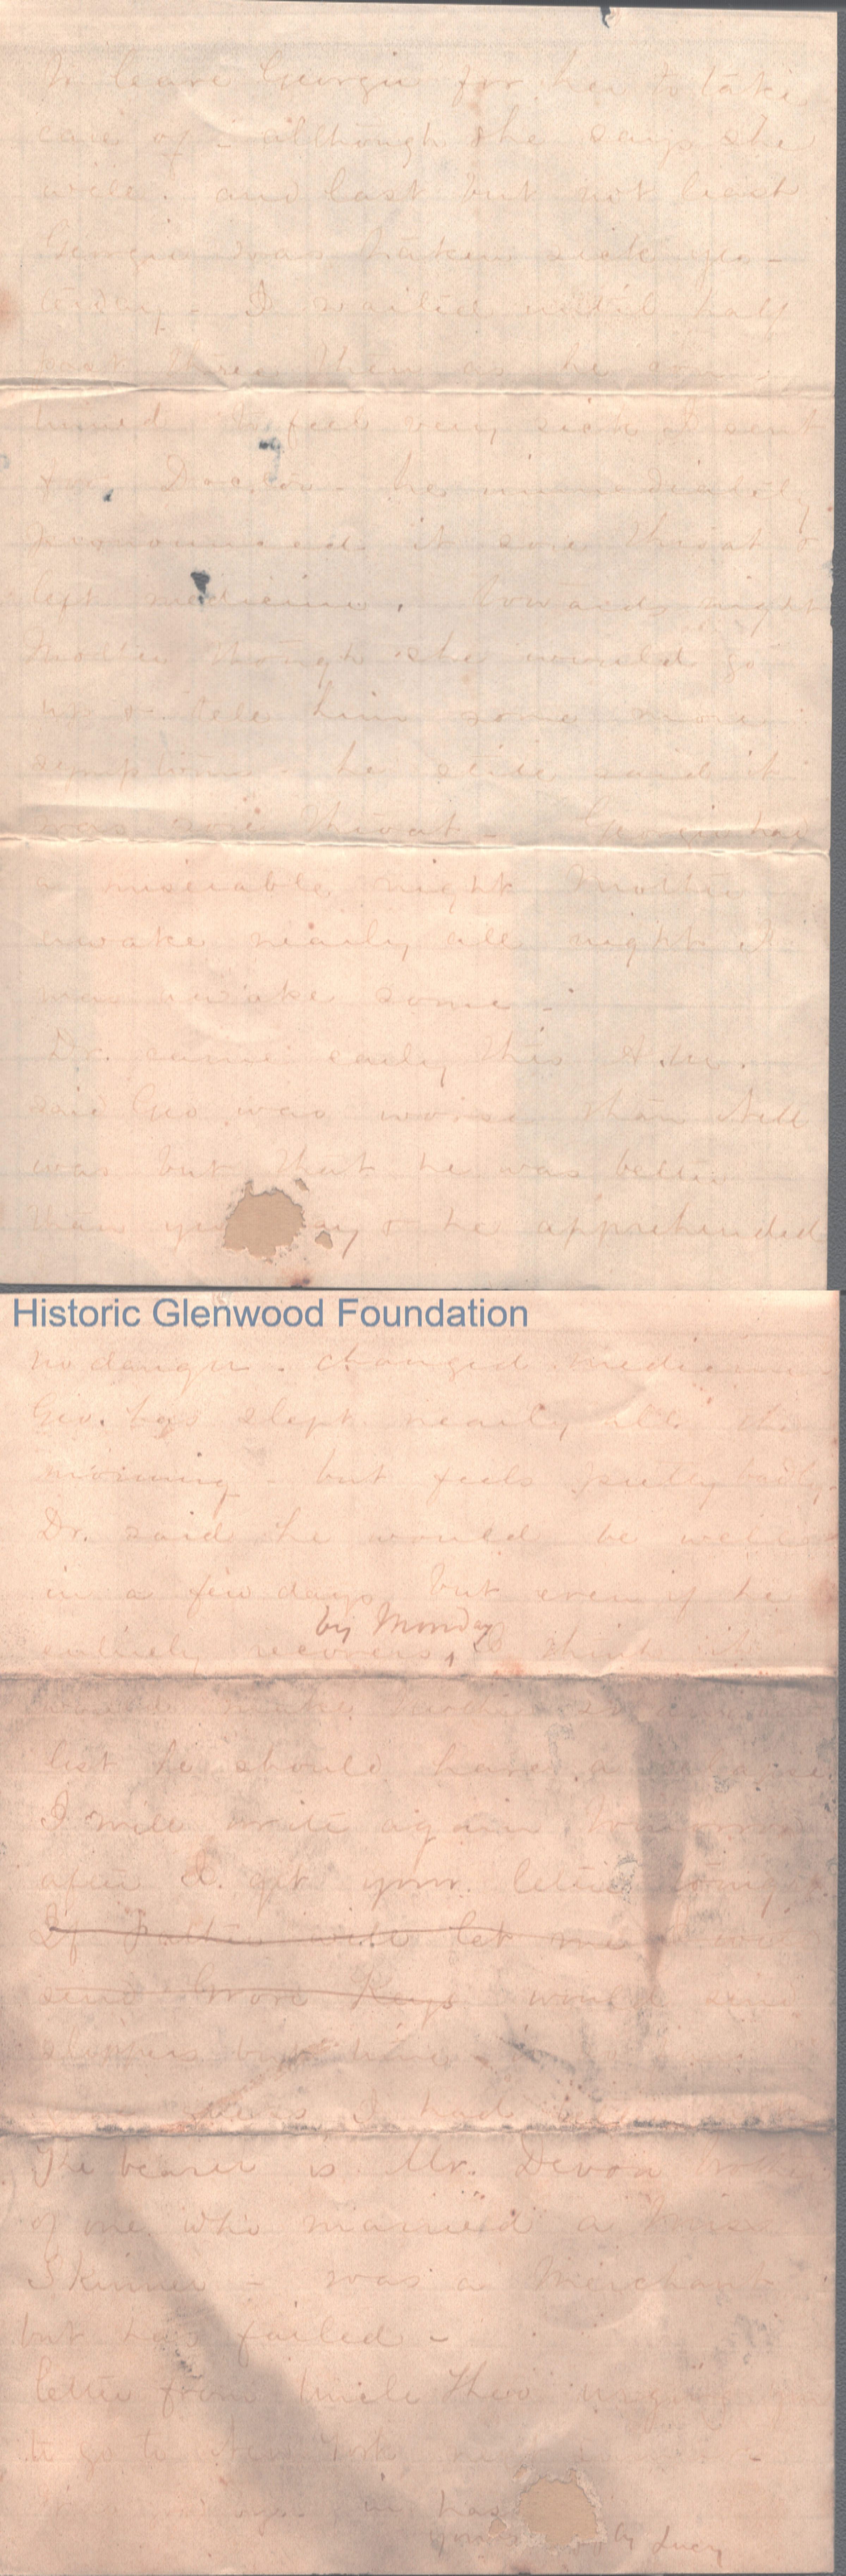 to leave Georgie for her to take
care of - although she says she
will. and last but not least
Georgie was taken sick yes-
terday - I waited until half
past three then as he con
tinued to feel very sick I sent
for Doctor - he immediately
pronounced it sore throat &
left medicine. Towards night
Mother though she would go
up & tell him some more
symptoms - he still said it
was sore throat - Georgie had
a miserable night Mother
awake nearly all night I
was awake some -
Dr. came early this A.M.
said Geo was worse than Nell
was but that he was better
than y & he apprehended
Historic Glenwood Foundation
no danger. changed medicine
Geo. has slept nearly all the
morning - but feels pretty badly.
Dr. said he would be well
in a few days but even if he
by Monday
entirely recovers, I think it
would make
lest he should have a relapse
I will write again tomorrow
after I get your letter
If Father will let me I will
send would send
slippers but
I had
The bearer is Mr. Devoa brother
of one who married a Miss
Skinner - was a Merchant
but has failed -
letter from Uncle Theo urging you
to go to New York
in has
yours ly Lucy